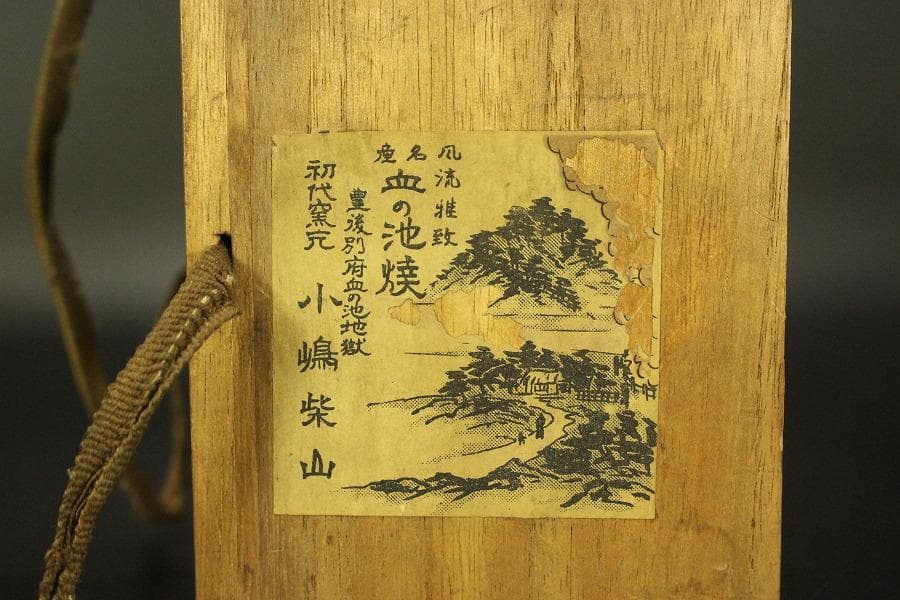 風流雅致
名産
血の池焼
豊後別府血の池地獄
初代窯元
小嶋柴山